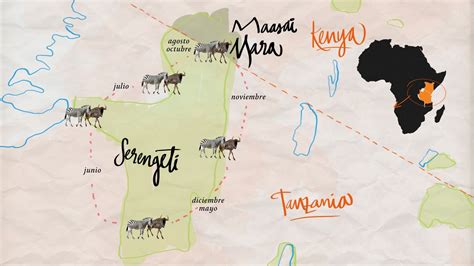 Maasai
Mara
Kenya
agosto
octubre
julio
noviembre
Serengeti
junio
diciembre
mayo
Tanzania